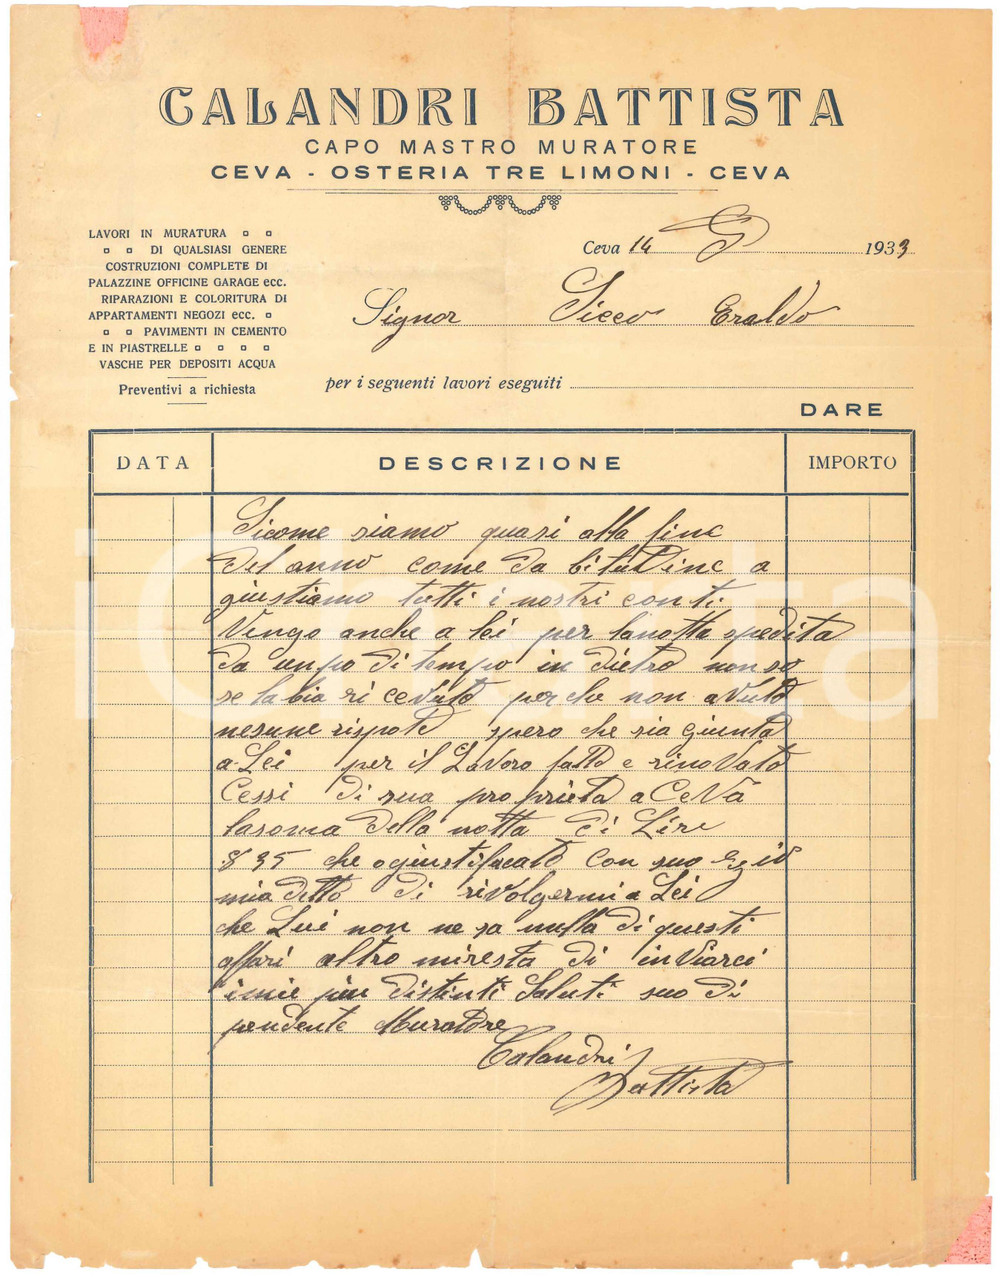 CALANDRI BATTISTA
CAPO MASTRO MURATORE
CEVA - OSTERIA TRE LIMONI - CEVA
LAVORI IN MURATURA
DI QUALSIASI GENERE
COSTRUZIONI COMPLETE DI
PALAZZINE OFFICINE GARAGE ecc.
RIPARAZIONI E COLORITURA DI
APPARTAMENTI NEGOZI ecc.
PAVIMENTI IN CEMENTO
E IN PIASTRELLE
VASCHE PER DEPOSITI ACQUA
Preventivi a richiesta
Ceva 14 1933
Signor Sicco Eraldo
per i seguenti lavori eseguiti
DARE
DATA DESCRIZIONE IMPORTO
Sicome siamo quasi alla fine
del anno come da bitudine a
giustiamo tutti i nostri conti
Vengo anche a lei per lanotta spedita
da unpo di tempo in dietro non so
se labia ri cevuta perche non avuto
nesune risposte spero che sia giunta
a Lei per il Lavoro fatto e rinovato
Cessi di sua proprieta a Ceva
lasoma della notta di Lire
835 che con suo
mia detto di rivolgermi a Lei
che Lui non ne sa nulla di questi
affari altro miresta di inviarci
imiei piu distinti Saluti suo di
pendente Muratore
Calandri
Battista
iCharta